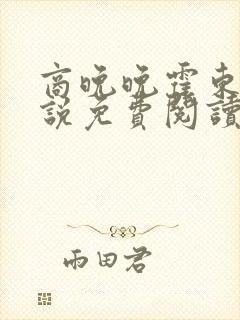 商晚晚霍東
說免費閱讀
雨田君